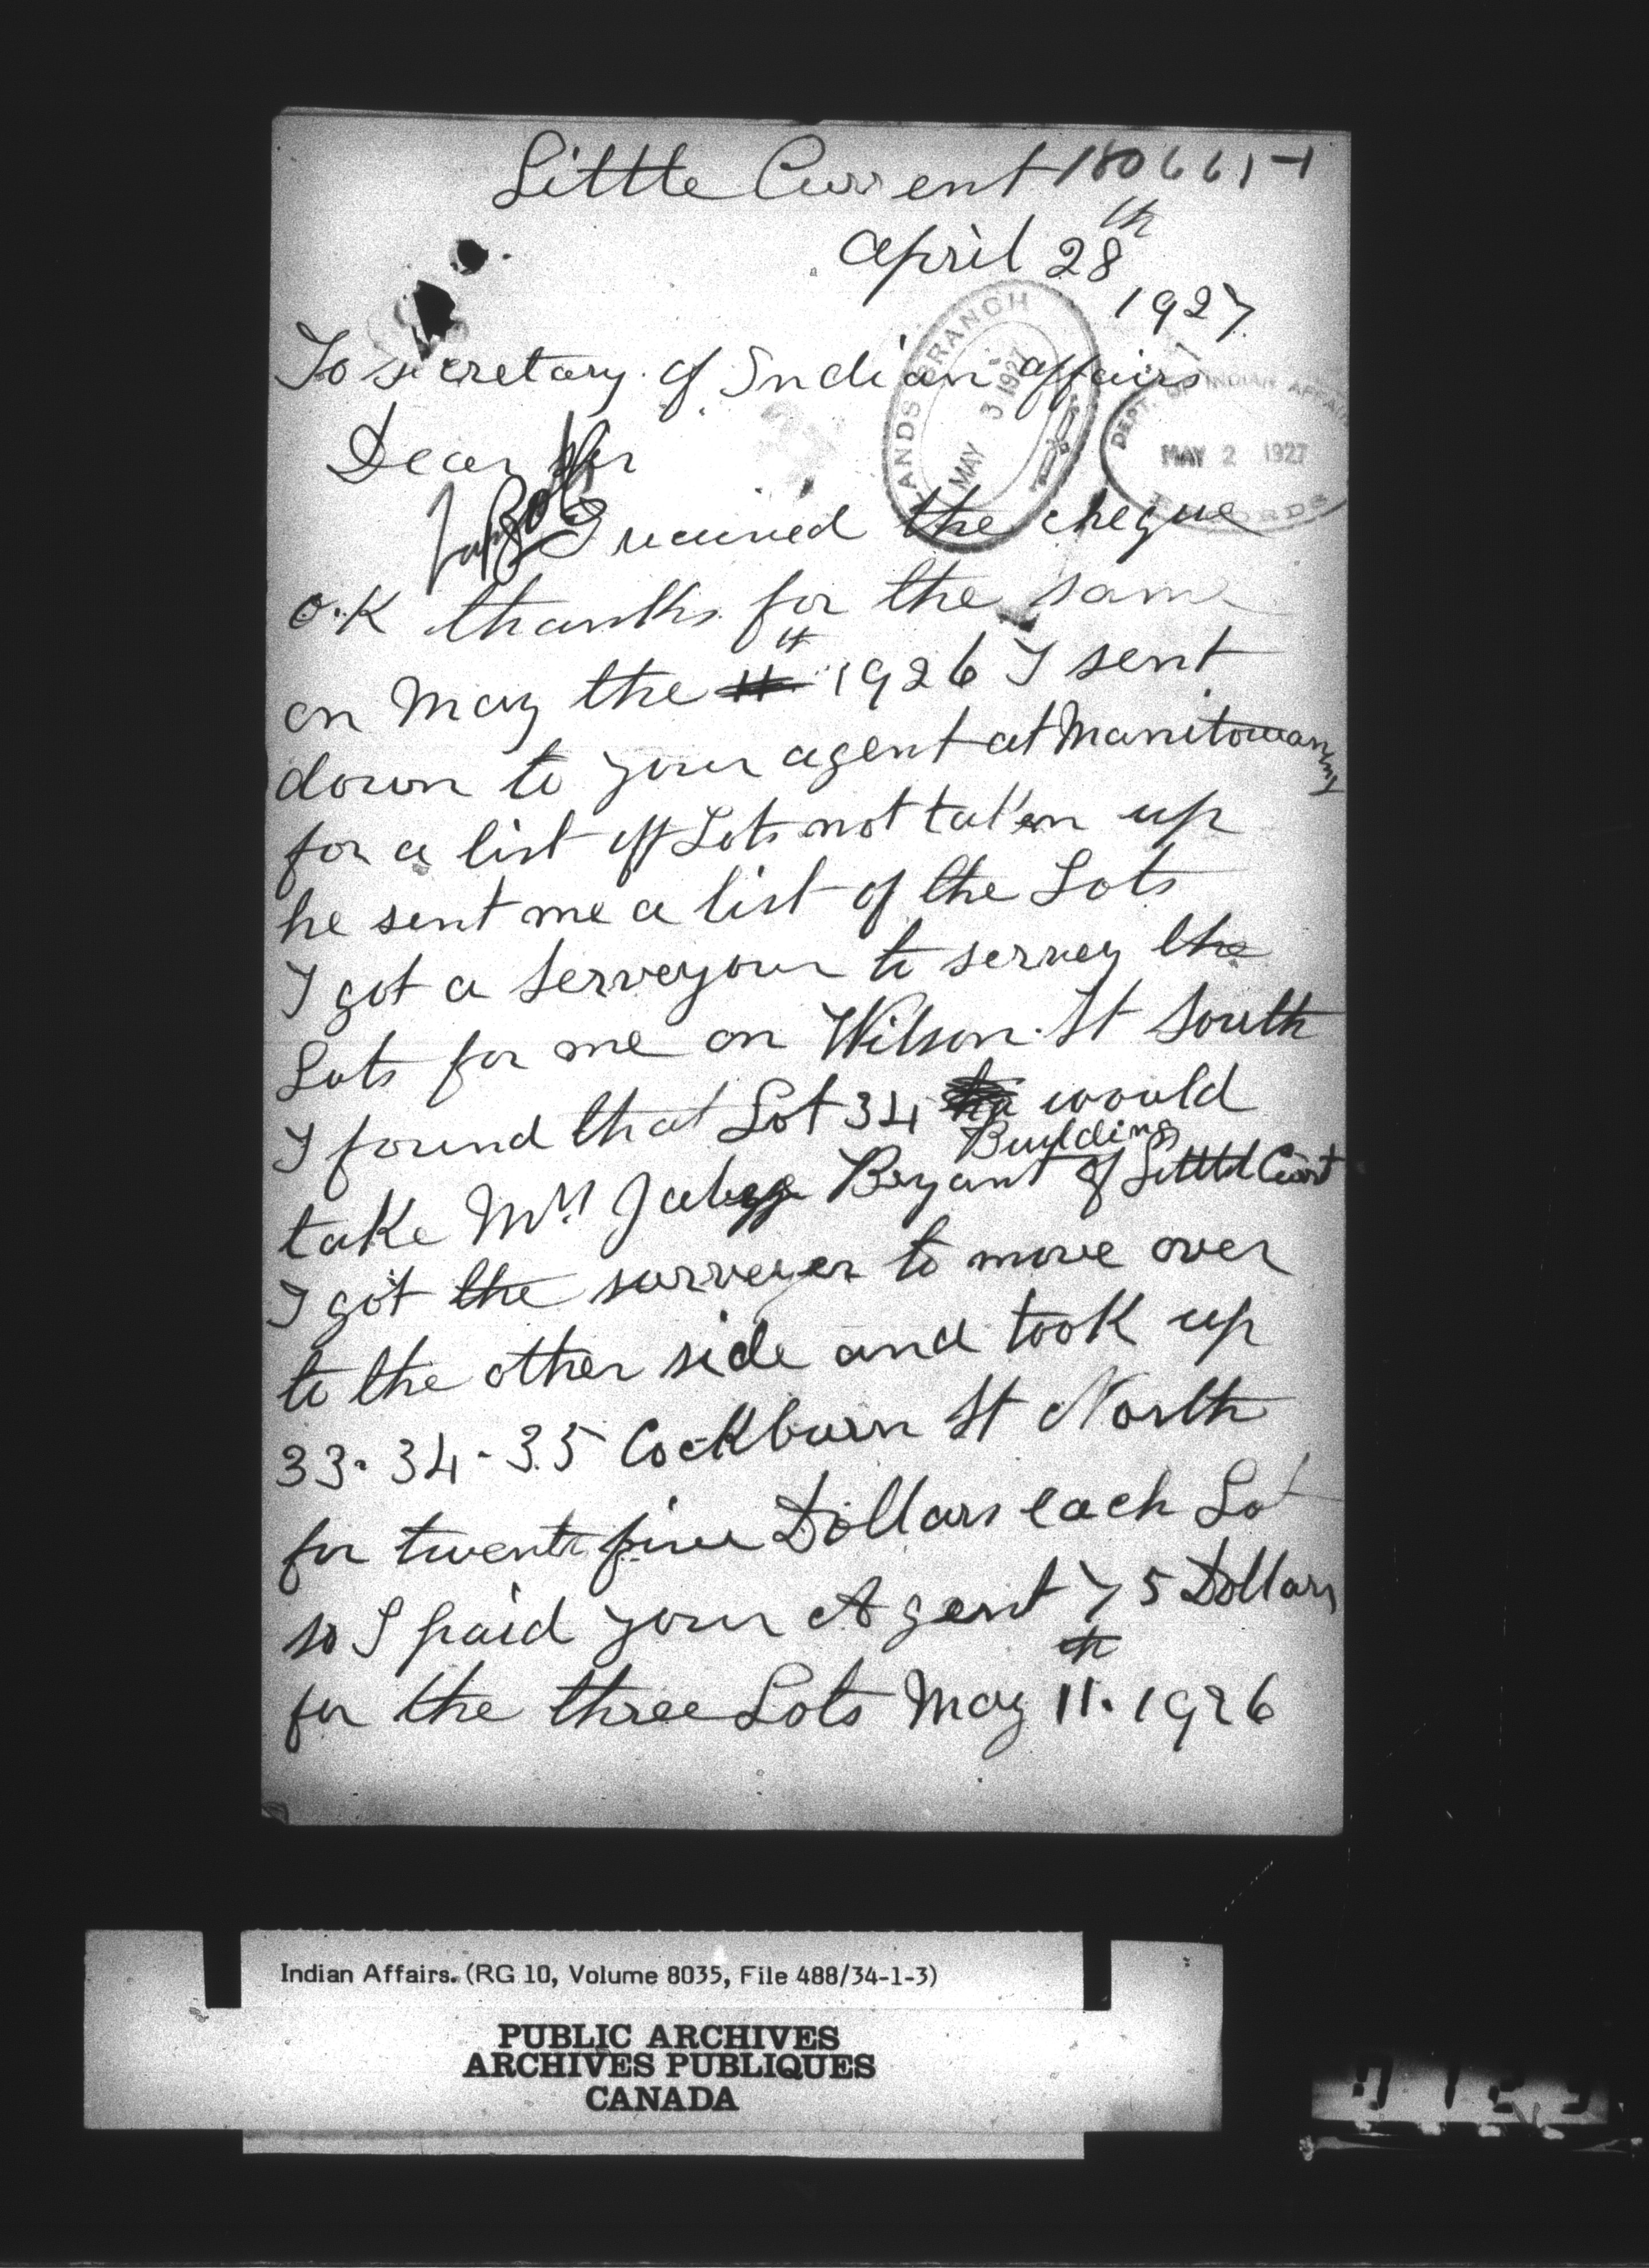 Little Current 180665-1
April 28th
1927
To secretary of Indian affairs
LANDS BRANCH
MAY 3 1927
DEPT. OF INDIAN AFFAIRS
MAY 2 1927
RECORDS
Dear Sir
I recived the cheque
O.K thanks for the same
on May the 11 1926 I sent
down to your agent at Manitowaning
for a list off Lots not taken up
he sent me a list of the Lots
I got a serveyour to servey the
Lots for me on Wilson St South
I found that Lot 34 would
Building
take Mr Jabez Bryant of Little Curnt
I got the surveyer to move over
to the other side and took up
33-34-35 Cockburn St North
for twenti five Dollars each Lot
so I paid your Agent 75 Dollars
for the three Lots May 11th 1926
Indian Affairs. (RG 10, Volume 8035, File 488/34-1-3)
PUBLIC ARCHIVES
ARCHIVES PUBLIQUES
CANADA